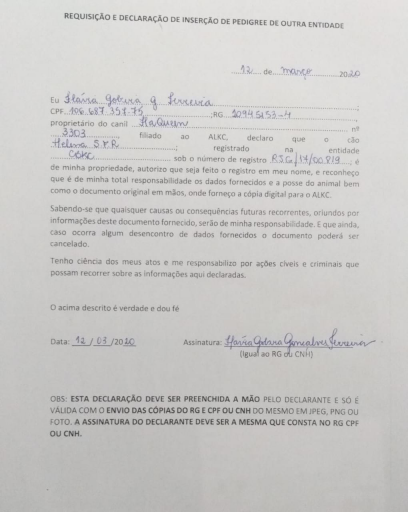 REQUISIÇÃO E DECLARAÇÃO DE INSERÇÃO DE PEDIGREE DE OUTRA ENTIDADE
12 de março 2020
Eu Flávia Gobira G Ferreira ;
CPF 106.687.357.75 ;RG 10945153-4 ,
proprietário do canil FlaQueen nº
3303 filiado ao ALKC, declaro que o cão
Helena S.V.R. ; registrado na entidade
CBKC sob o número de registro RJG/14/00819 ; é
de minha propriedade, autorizo que seja feito o registro em meu nome, e reconheço
que é de minha total responsabilidade os dados fornecidos e a posse do animal bem
como o documento original em mãos, onde forneço a cópia digital para o ALKC.
Sabendo-se que quaisquer causas ou consequências futuras recorrentes, oriundos por
informações deste documento fornecido, serão de minha responsabilidade. E que ainda,
caso ocorra algum desencontro de dados fornecidos o documento poderá ser
cancelado.
Tenho ciência dos meus atos e me responsabilizo por ações cíveis e criminais que
possam recorrer sobre as informações aqui declaradas.
O acima descrito é verdade e dou fé
Data: 12 / 03 /2020 Assinatura: Flávia Gobira Gonçalves Ferreira
(Igual ao RG ou CNH)
OBS: ESTA DECLARAÇÃO DEVE SER PREENCHIDA A MÃO PELO DECLARANTE E SO É
VÁLIDA COM O ENVIO DAS CÓPIAS DO RG E CPF OU CNH DO MESMO EM JPEG, PNG OU
FOTO. A ASSINATURA DO DECLARANTE DEVE SER A MESMA QUE CONSTA NO RG CPF
OU CNH.